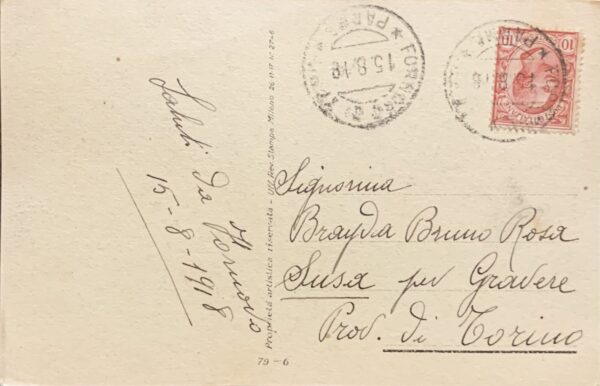 Saluti da
Fornovo
15-8-1918
Proprietà artistica riservata - Uff. Rev. Stampa Milano 26-11-17 N. 27-6
79-6
15.8.18
10
Signorina
Brayda Bruno Rosa
Susa per Gravere
Prov. di Torino